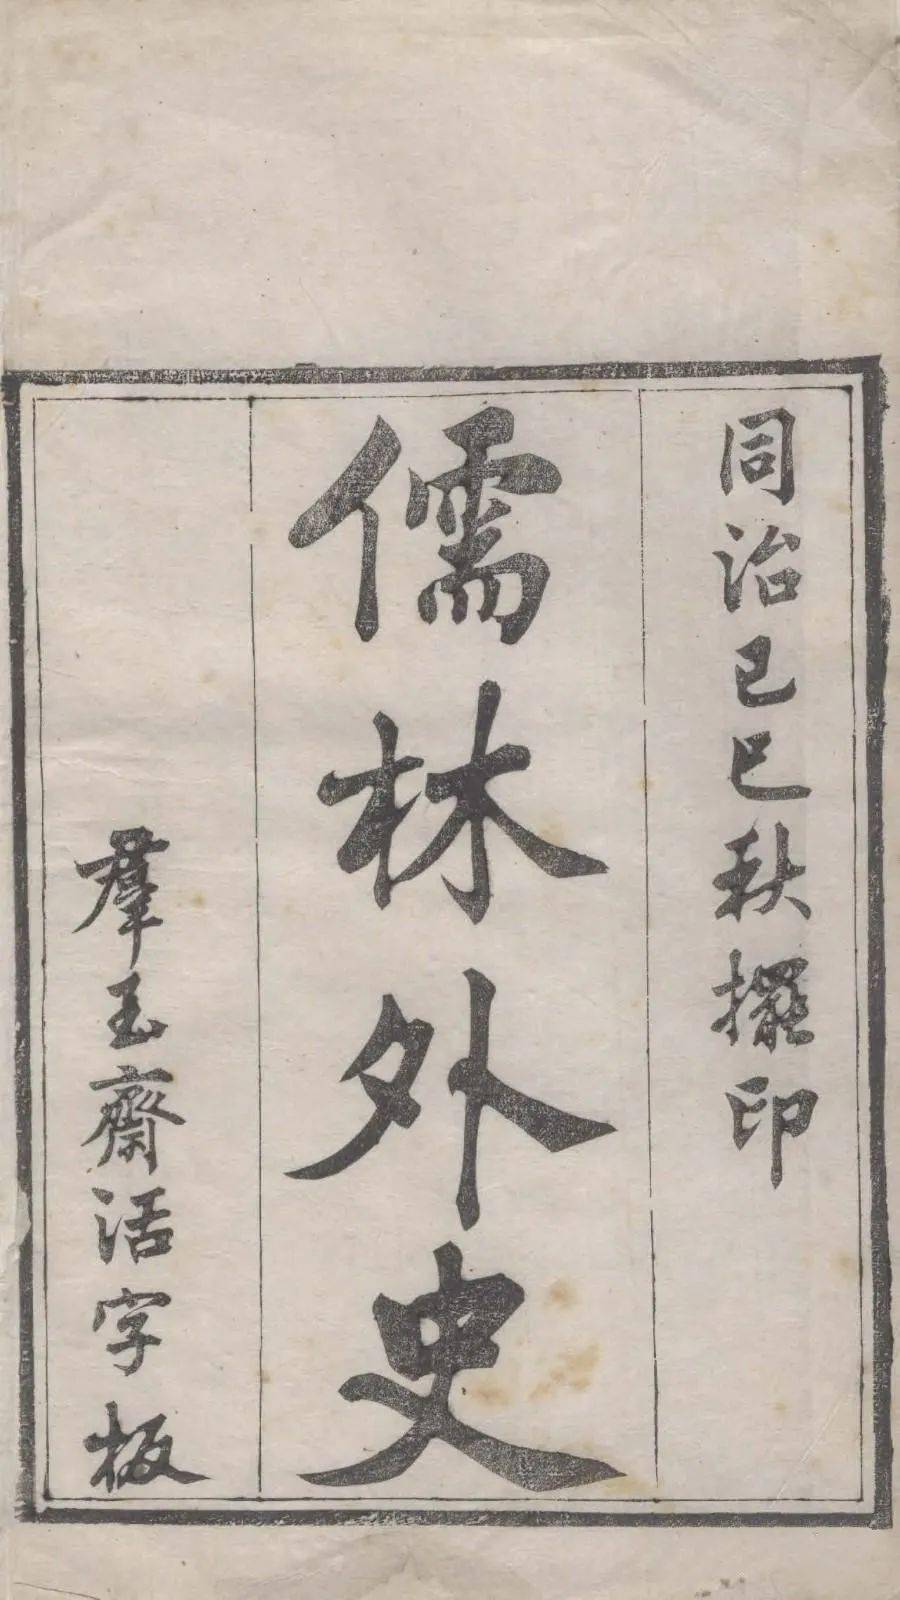 同治己巳秋擺印
儒林外史
羣玉齋活字板